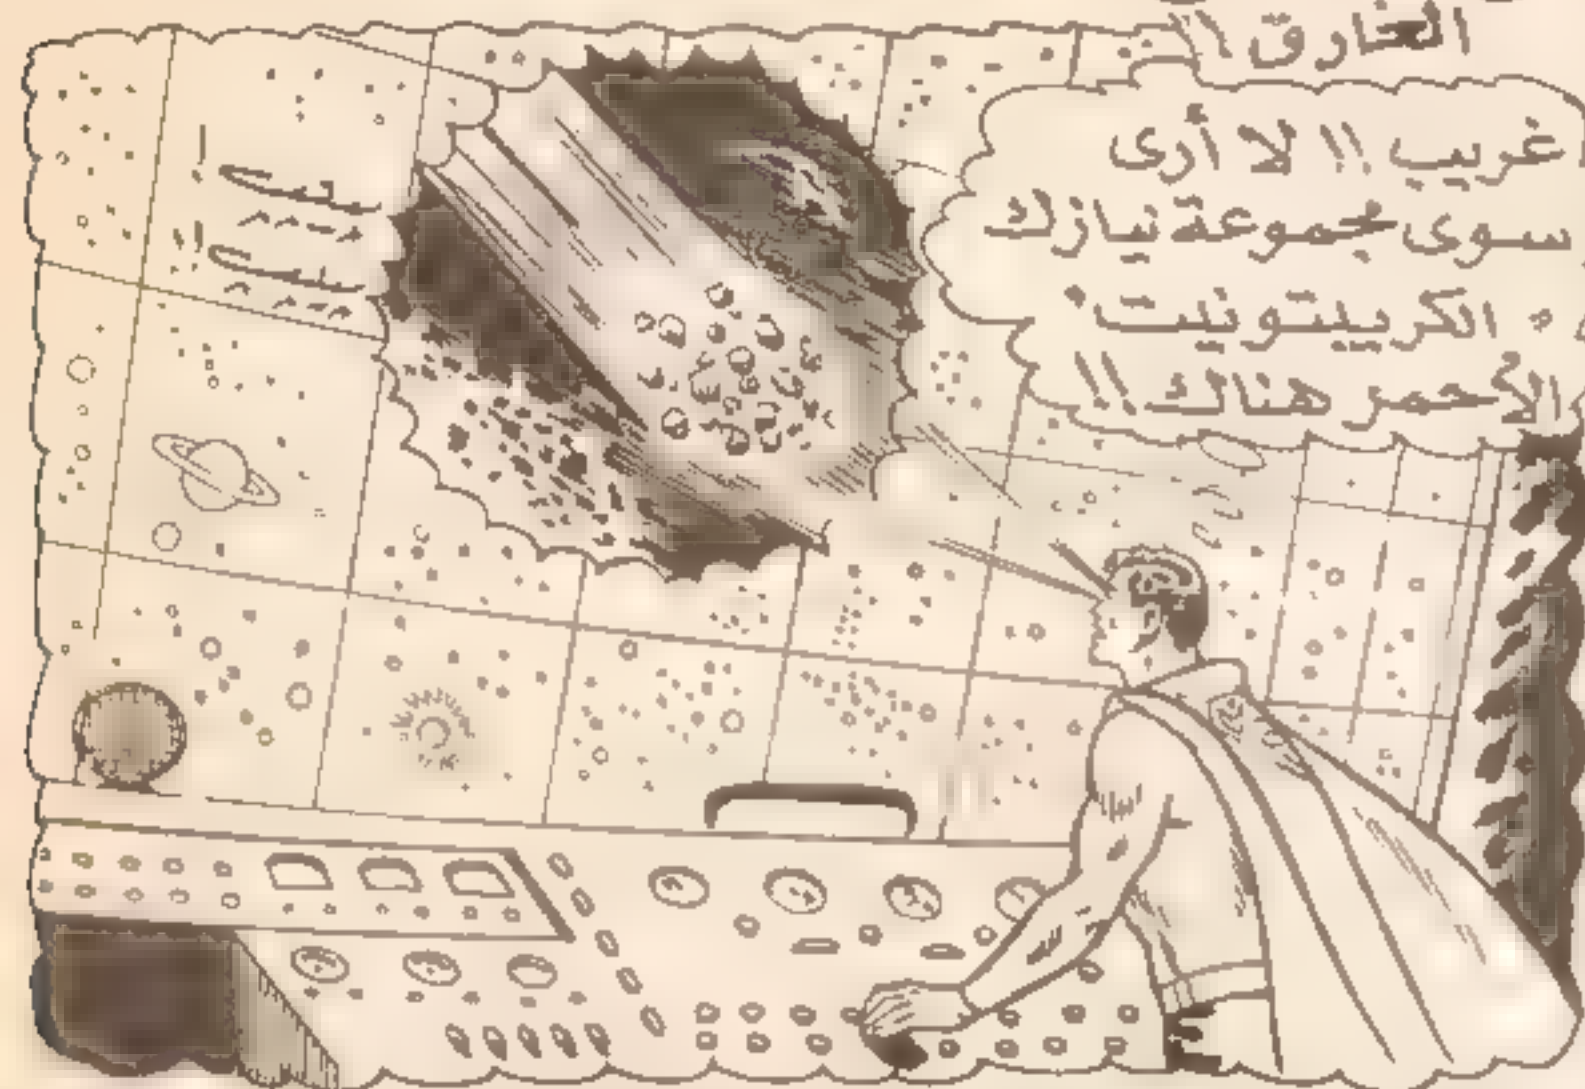 الخارق !!
غريب !! لا أرى
سوى مجموعة نيازك
الكريبتونيت
الأحمر هناك !!